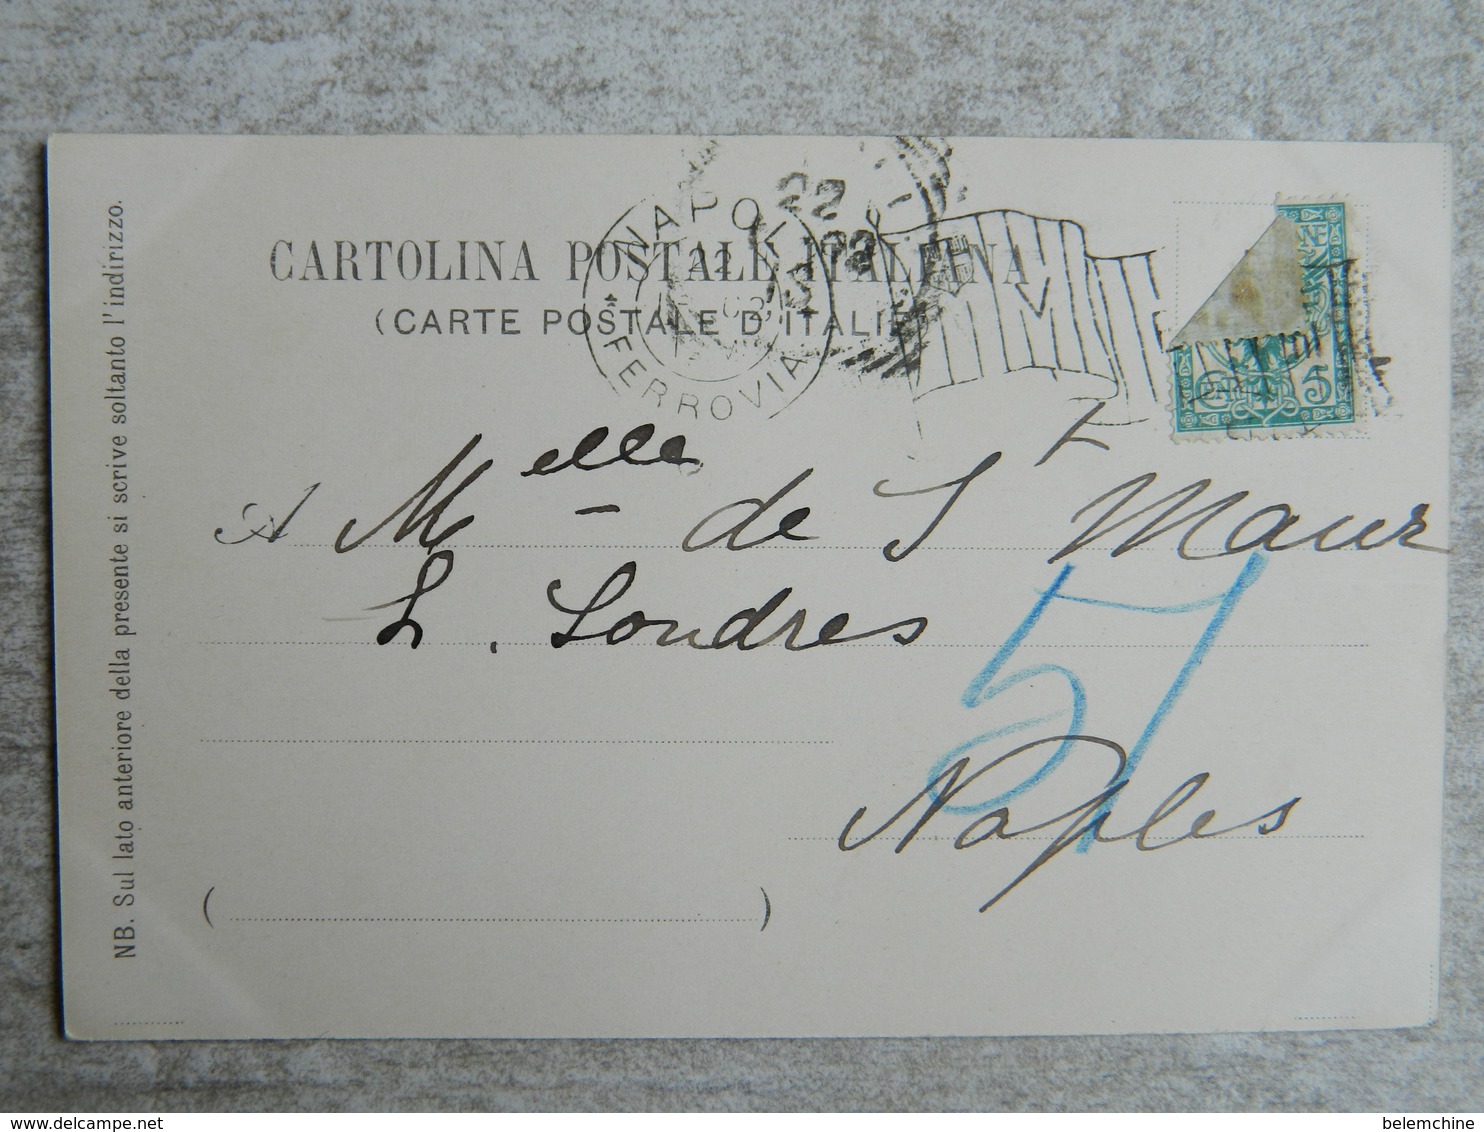 CARTOLINA POSTALE ITALIANA
(CARTE POSTALE D'ITALIE)
NAPOLI
FERROVIA
22
22
A Melle - de S Maur
H. Londres
57
Naples
NB. Sul lato anteriore della presente si scrive soltanto l'indirizzo.
CENT. 5
www.delcampe.net
belemchine